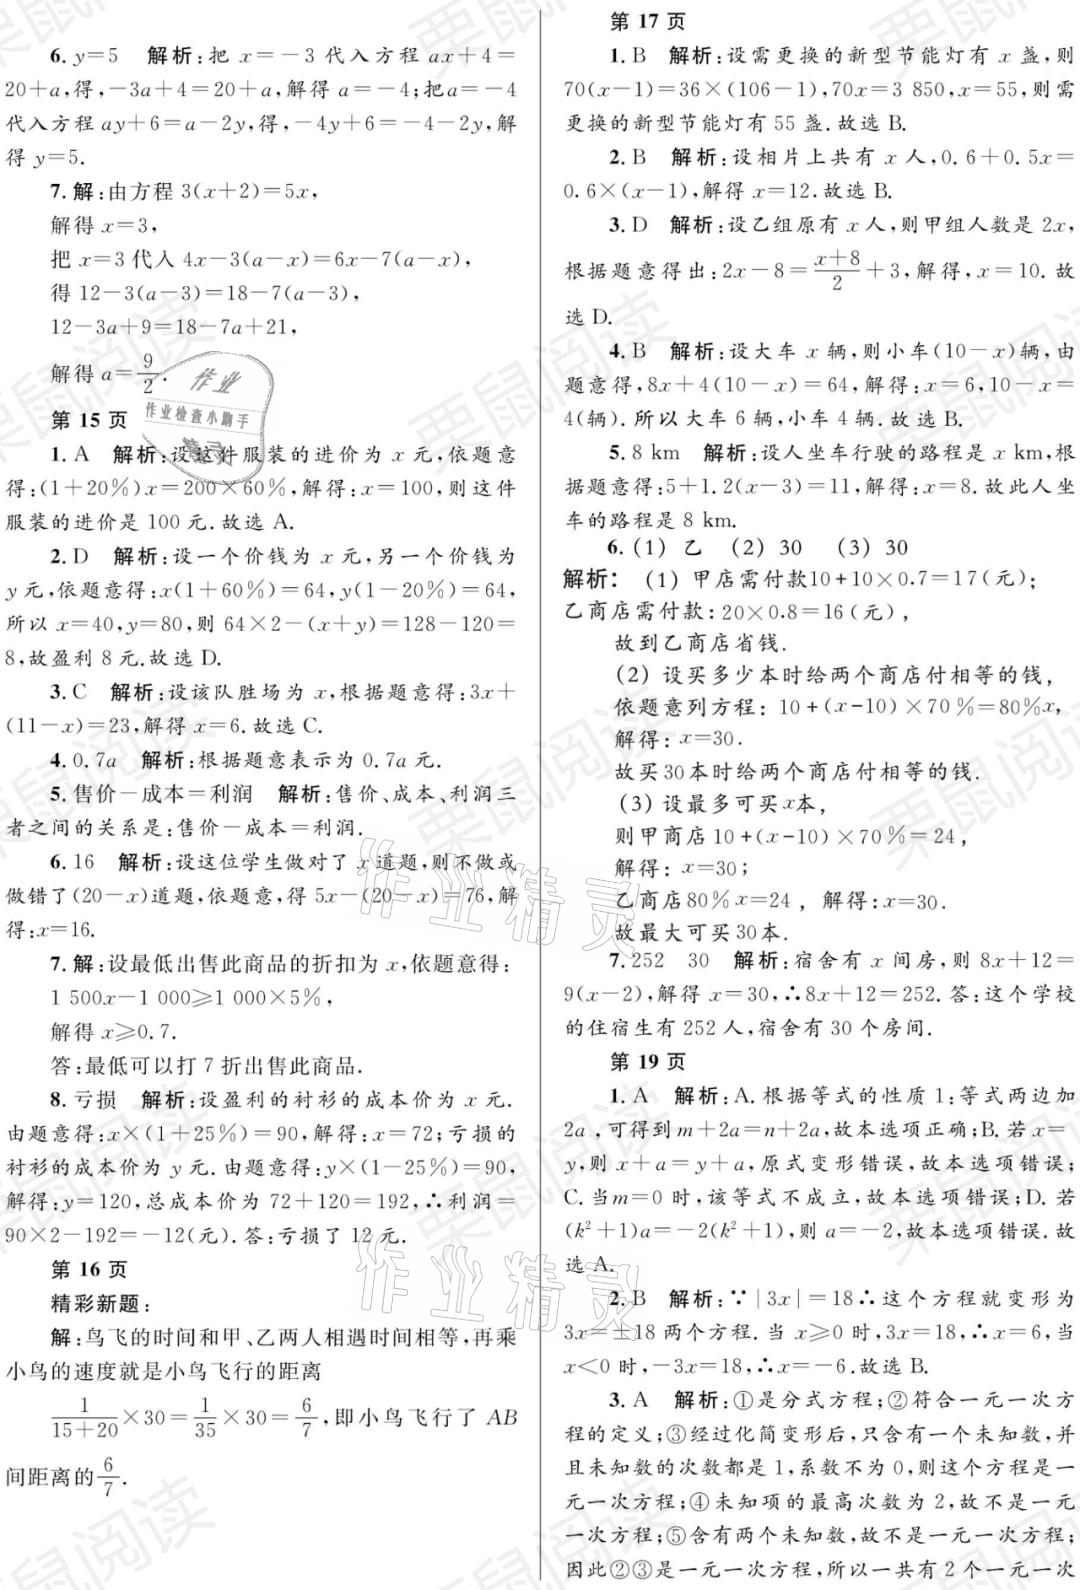 6. y=5　解析:把 x=-3 代入方程 ax+4=
20+a,得,-3a+4=20+a,解得 a=-4;把a=-4
代入方程 ay+6=a-2y,得,-4y+6=-4-2y,解
得 y=5.
7. 解:由方程 3(x+2)=5x,
解得 x=3,
把 x=3 代入 4x-3(a-x)=6x-7(a-x),
得 12-3(a-3)=18-7(a-3),
12-3a+9=18-7a+21,
解得 a=9/2.
第 15 页
1. A　解析:设这件服装的进价为 x 元,依题意
得:(1+20%)x=200×60%,解得:x=100,则这件
服装的进价是 100 元.故选 A.
2. D　解析:设一个价钱为 x 元,另一个价钱为
y元,依题意得:x(1+60%)=64,y(1-20%)=64,
所以 x=40,y=80,则 64×2-(x+y)=128-120=
8,故盈利 8 元.故选 D.
3. C　解析:设该队胜场为 x,根据题意得:3x+
(11-x)=23,解得 x=6.故选 C.
4. 0.7a　解析:根据题意表示为 0.7a 元.
5. 售价-成本=利润　解析:售价、成本、利润三
者之间的关系是:售价-成本=利润.
6. 16　解析:设这位学生做对了 x 道题,则不做或
做错了(20-x)道题,依题意,得 5x-(20-x)=76,解
得:x=16.
7. 解:设最低出售此商品的折扣为 x,依题意得:
1 500x-1 000≥1 000×5%,
解得 x≥0.7.
答:最低可以打 7 折出售此商品.
8. 亏损　解析:设盈利的衬衫的成本价为 x 元.
由题意得:x×(1+25%)=90,解得:x=72;亏损的
衬衫的成本价为 y 元.由题意得:y×(1-25%)=90,
解得:y=120,总成本价为 72+120=192,∴利润=
90×2-192=-12(元).答:亏损了 12 元.
第 16 页
精彩新题:
解:鸟飞的时间和甲、乙两人相遇时间相等,再乘
小鸟的速度就是小鸟飞行的距离
1/(15+20)×30=1/35×30=6/7,即小鸟飞行了 AB
间距离的6/7.
第 17 页
1. B　解析:设需更换的新型节能灯有 x 盏,则
70(x-1)=36×(106-1),70x=3 850,x=55,则需
更换的新型节能灯有 55 盏.故选 B.
2. B　解析:设相片上共有 x 人,0.6+0.5x=
0.6×(x-1),解得 x=12.故选 B.
3. D　解析:设乙组原有 x 人,则甲组人数是 2x,
根据题意得出:2x-8=(x+8)/2+3,解得,x=10.故
选 D.
4. B　解析:设大车 x 辆,则小车(10-x)辆,由
题意得,8x+4(10-x)=64,解得:x=6,10-x=
4(辆).所以大车 6 辆,小车 4 辆.故选 B.
5. 8 km　解析:设人坐车行驶的路程是 x km,根
据题意得:5+1.2(x-3)=11,解得:x=8.故此人坐
车的路程是 8 km.
6. (1) 乙　(2) 30　(3) 30
解析: (1) 甲店需付款10+10×0.7=17(元);
乙商店需付款: 20×0.8=16(元),
故到乙商店省钱.
(2) 设买多少本时给两个商店付相等的钱,
依题意列方程: 10+(x-10)×70%=80%x,
解得: x=30.
故买30本时给两个商店付相等的钱.
(3) 设最多可买x本,
则甲商店10+(x-10)×70%=24,
解得: x=30;
乙商店80%x=24, 解得:x=30.
故最大可买30本.
7. 252　30　解析:宿舍有 x 间房,则 8x+12=
9(x-2),解得 x=30,∴8x+12=252.答:这个学校
的住宿生有 252 人,宿舍有 30 个房间.
第 19 页
1. A　解析:A.根据等式的性质 1:等式两边加
2a,可得到m+2a=n+2a,故本选项正确;B.若 x=
y,则 x+a=y+a,原式变形错误,故本选项错误;
C.当m=0 时,该等式不成立,故本选项错误;D.若
(k²+1)a=-2(k²+1),则 a=-2,故本选项错误.故
选 A.
2. B　解析:∵|3x|=18∴这个方程就变形为
3x=±18 两个方程.当 x≥0 时,3x=18,∴x=6,当
x<0 时,-3x=18,∴x=-6.故选 B.
3. A　解析:①是分式方程;②符合一元一次方
程的定义;③经过化简变形后,只含有一个未知数,并
且未知数的次数都是 1,系数不为 0,则这个方程是一
元一次方程;④未知项的最高次数为 2,故不是一元
一次方程;⑤含有两个未知数,故不是一元一次方程;
因此②③是一元一次方程,所以一共有 2 个一元一次
作业
作业检查小助手
精灵
作业精灵
作业精灵
栗鼠阅读